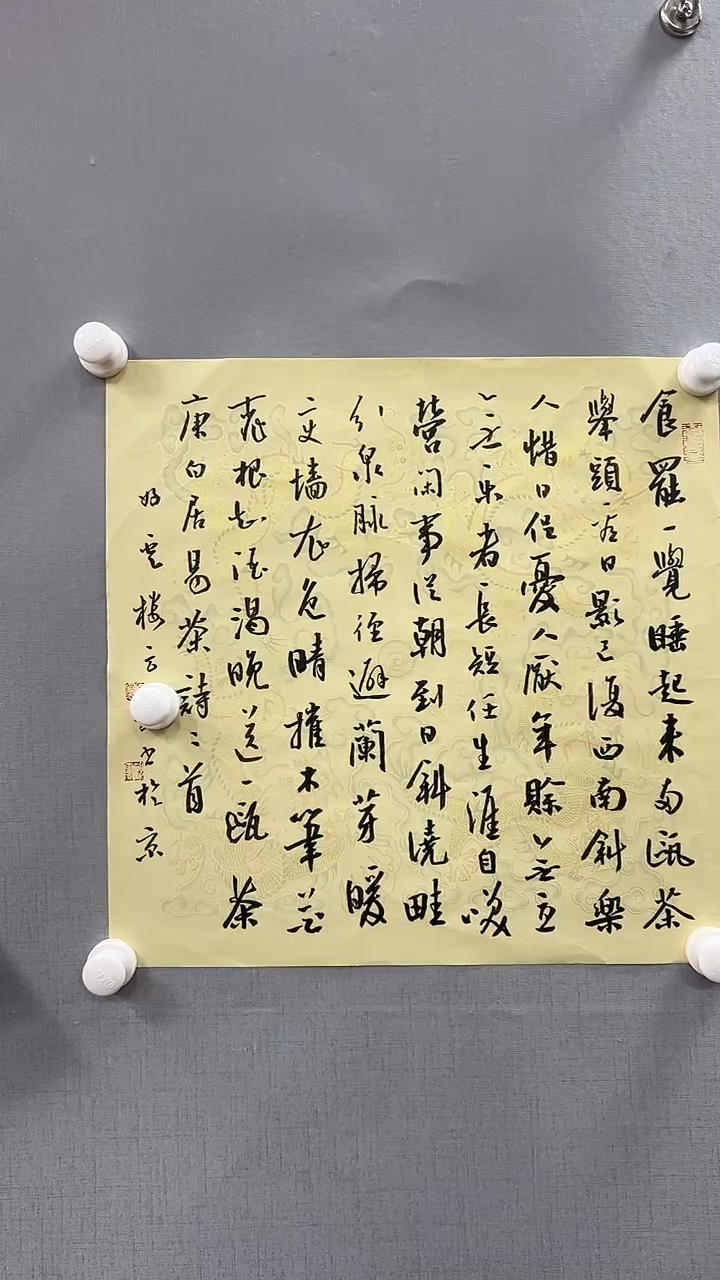 食罷一覺睡起來兩甌茶
舉頭看日影已復西南斜樂
人惜日促憂人厭年賒無憂
無樂者長短任生涯自咲
營閑事從朝到日斜澆畦
引泉脈掃徑避蘭芽暖
變墻衣色晴摧木筆花
桃根知酒渴晚送一甌茶
唐白居易茶詩二首
好雲楼書於京